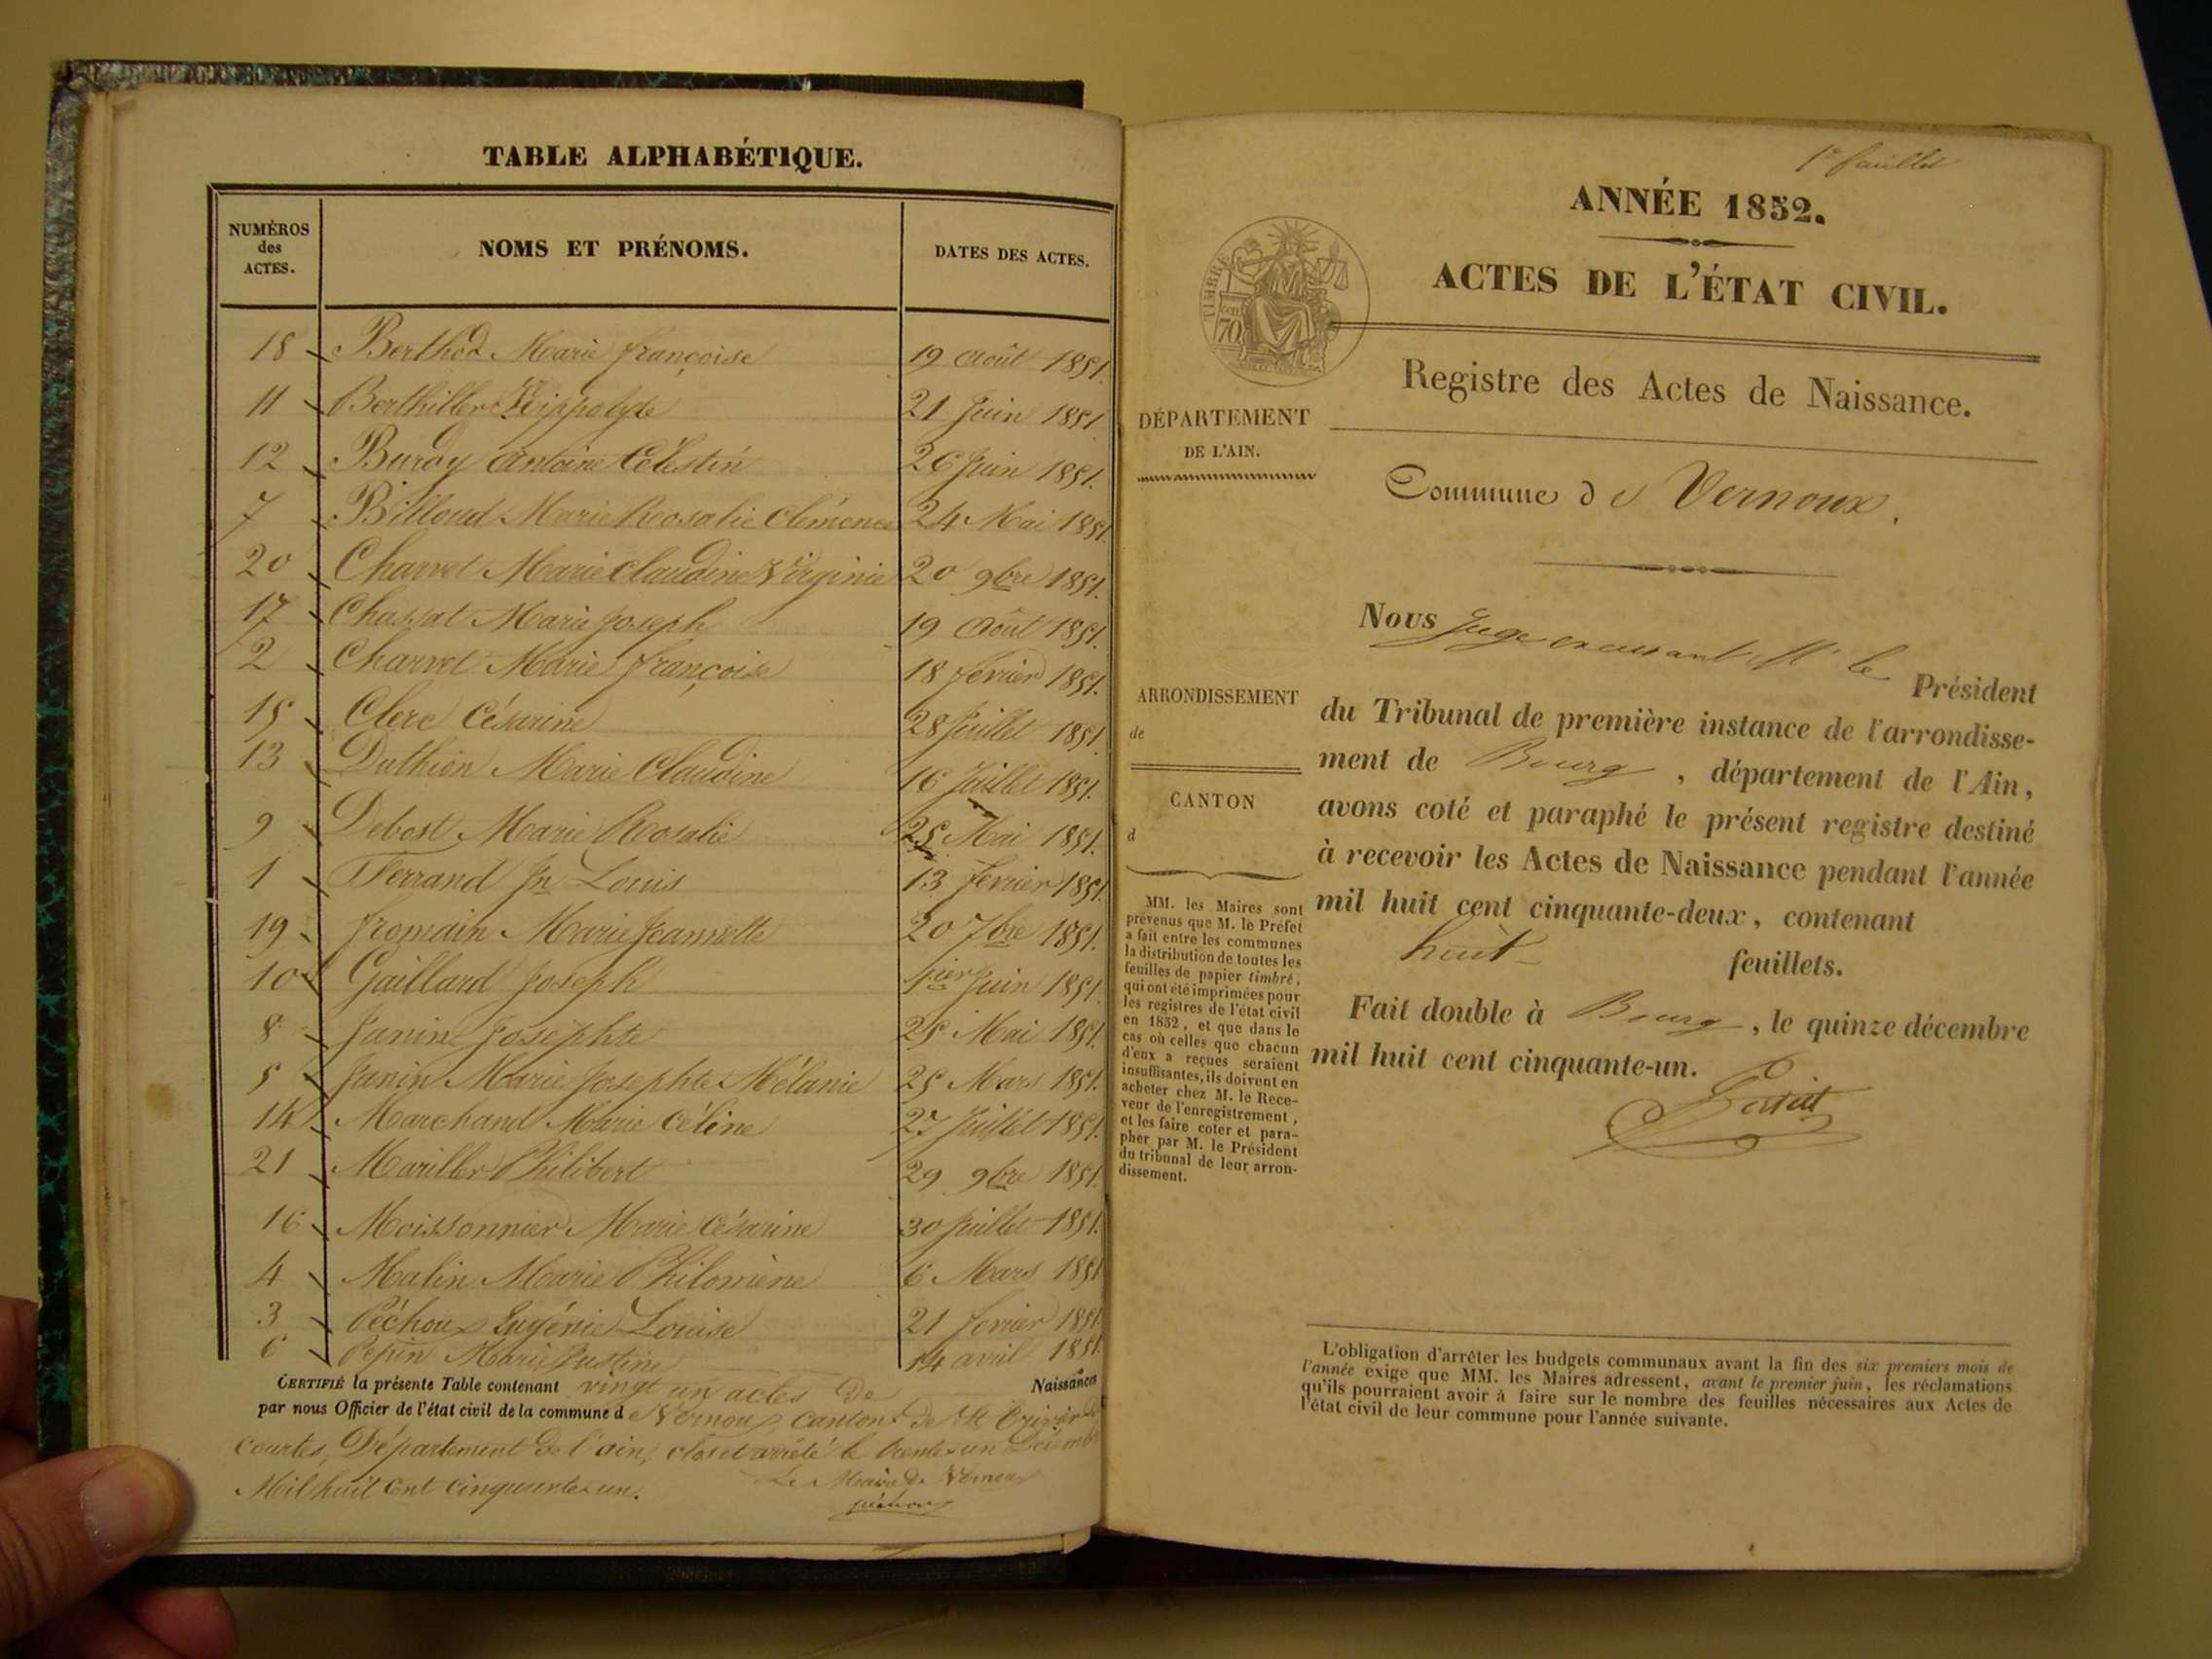 TABLE ALPHABÉTIQUE.
NUMÉROS des ACTES. NOMS ET PRÉNOMS. DATES DES ACTES.
18 Berthod Marie françoise 19 Août 1851.
11 Berthiller Hippolyte 21 Juin 1851
12 Buroy Antoine Célestin 26 Juin 1851.
7 Billoud Marie Roosalie Clémence 24 Mai 1851.
20 Charvet Marie Claudine Virginie 20 9bre 1851.
17 Chassat Marie Joseph 19 Août 1851.
2 Charvet Marie françoise 18 février 1851.
15 Clerc Césarine 28 Juillet 1851
13 Duthion Marie Claudine 16 Juillet 1851.
9 Debost Marie Roosalie 25 Mai 1851.
1 Ferrand Jn Louis 13 février 1851
19 fromain Marie Jeannette 20 7bre 1851.
10 Gaillard Joseph 1ier Juin 1851.
8 Janin Josephte 25 Mai 1851.
5 Janin Marie Josephte Mélanie 25 Mars 1851.
14 Marchand Marie Céline 27 Juillet 1851.
21 Mariller Philibert 29 9bre 1851.
16 Moissonnier Marie Césarine 30 Juillet 1851.
4 Malin Marie Philomène 6 Mars 1851
3 Péchoux Eugénie Louise 21 février 1851.
6 Pepin Marie Justine 14 avril 1851
CERTIFIÉ la présente Table contenant vingt un actes de Naissances
par nous Officier de l'état civil de la commune d e Vernoux, Canton de St Trivier de
Courtes, Département de l'ain, clos et arrêté le trente un Décembre
Mil huit Cent Cinquante un.
Le Maire de Vernoux
péchoux
1er feuillet
ANNÉE 1852.
ACTES DE L'ÉTAT CIVIL.
TIMBRE
70
Registre des Actes de Naissance.
DÉPARTEMENT
DE L'AIN.
Commune d e Vernoux.
Nous Juge excusant Mr le Président
du Tribunal de première instance de l'arrondisse-
ment de Bourg, département de l'Ain,
avons coté et paraphé le présent registre destiné
à recevoir les Actes de Naissance pendant l'année
mil huit cent cinquante-deux, contenant
huit feuillets.
Fait double à Bourg, le quinze décembre
mil huit cent cinquante-un.
ARRONDISSEMENT
de
CANTON
d
MM. les Maires sont
prévenus que M. le Préfet
a fait entre les communes
la distribution de toutes les
feuilles de papier timbré,
qui ont été imprimées pour
les registres de l'état civil
en 1852, et que dans le
cas où celles que chacun
d'eux a reçues seraient
insuffisantes, ils doivent en
acheter chez M. le Rece-
veur de l'enregistrement,
et les faire coter et para-
pher par M. le Président
du tribunal de leur arron-
dissement.
L'obligation d'arrêter les budgets communaux avant la fin des six premiers mois de
l'année exige que MM. les Maires adressent, avant le premier juin, les réclamations
qu'ils pourraient avoir à faire sur le nombre des feuilles nécessaires aux Actes de
l'état civil de leur commune pour l'année suivante.